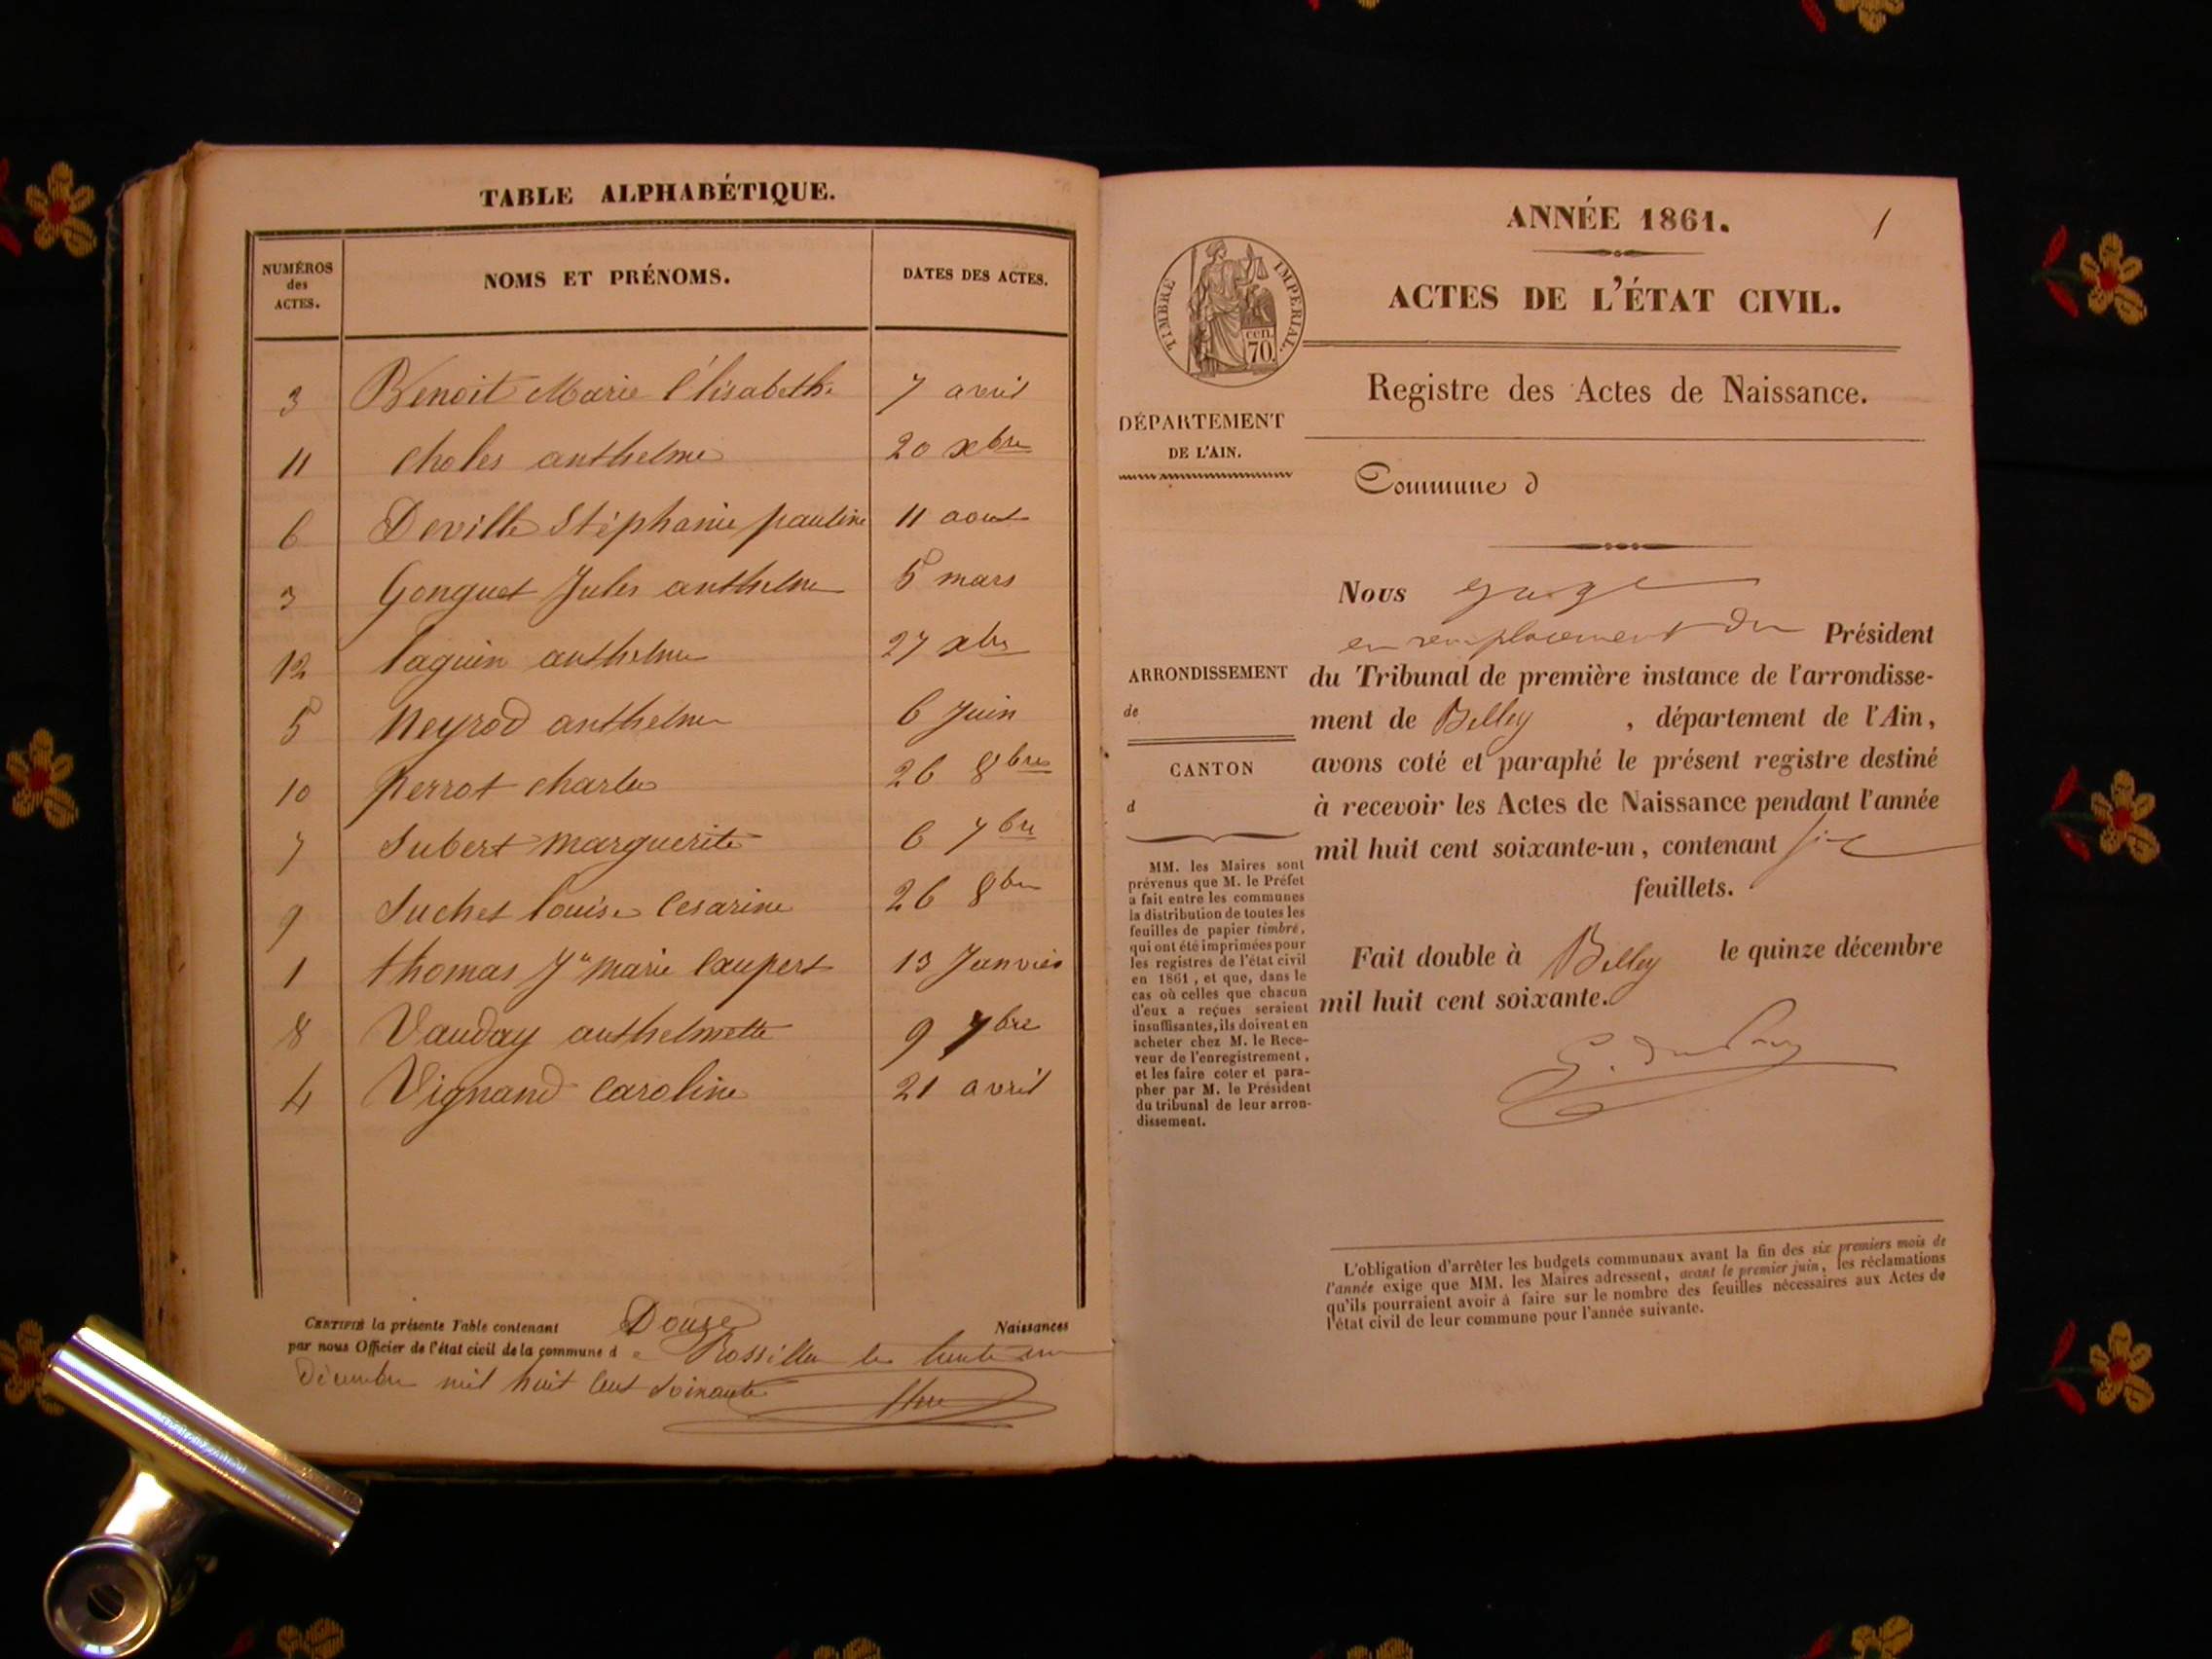 TABLE ALPHABÉTIQUE.
NUMÉROS
des
ACTES.
NOMS ET PRÉNOMS.
DATES DES ACTES.
3 Benoit Marie Élisabeth 7 avril
11 Choles anthelme 20 xbre
6 Deville Stéphanie pauline 11 aout
3 Gonguet Jules anthelme 5 mars
12 laguin anthelme 27 xbre
5 Neyrod anthelme 6 Juin
10 perrot charles 26 8bre
7 Subert marguerite 6 7bre
9 Suchet louise Cesarine 26 8bre
1 thomas marie 13 Janvier
8 Vauday anthelmette 9 7bre
4 Vignand Caroline 21 avril
CERTIFIÉ la présente Table contenant Douze Naissances
par nous Officier de l'état civil de la commune de Rossillon le trente un
Décembre mil huit Cent Soixante
ANNÉE 1861.
1
ACTES DE L'ÉTAT CIVIL.
TIMBRE IMPERIAL.
cen.
70.
Registre des Actes de Naissance.
DÉPARTEMENT
DE L'AIN.
Commune d
ARRONDISSEMENT
de
CANTON
d
MM. les Maires sont
prévenus que M. le Préfet
a fait entre les communes
la distribution de toutes les
feuilles de papier timbré,
qui ont été imprimées pour
les registres de l'état civil
en 1861, et que, dans le
cas où celles que chacun
d'eux a reçues seraient
insuffisantes, ils doivent en
acheter chez M. le Rece-
veur de l'enregistrement,
et les faire coter et para-
pher par M. le Président
du tribunal de leur arron-
dissement.
Nous juge
en remplacement du Président
du Tribunal de première instance de l'arrondisse-
ment de Belley , département de l'Ain,
avons coté et paraphé le présent registre destiné
à recevoir les Actes de Naissance pendant l'année
mil huit cent soixante-un, contenant six
feuillets.
Fait double à Belley le quinze décembre
mil huit cent soixante.
L'obligation d'arrêter les budgets communaux avant la fin des six premiers mois de
l'année exige que MM. les Maires adressent, avant le premier juin, les réclamations
qu'ils pourraient avoir à faire sur le nombre des feuilles nécessaires aux Actes de
l'état civil de leur commune pour l'année suivante.